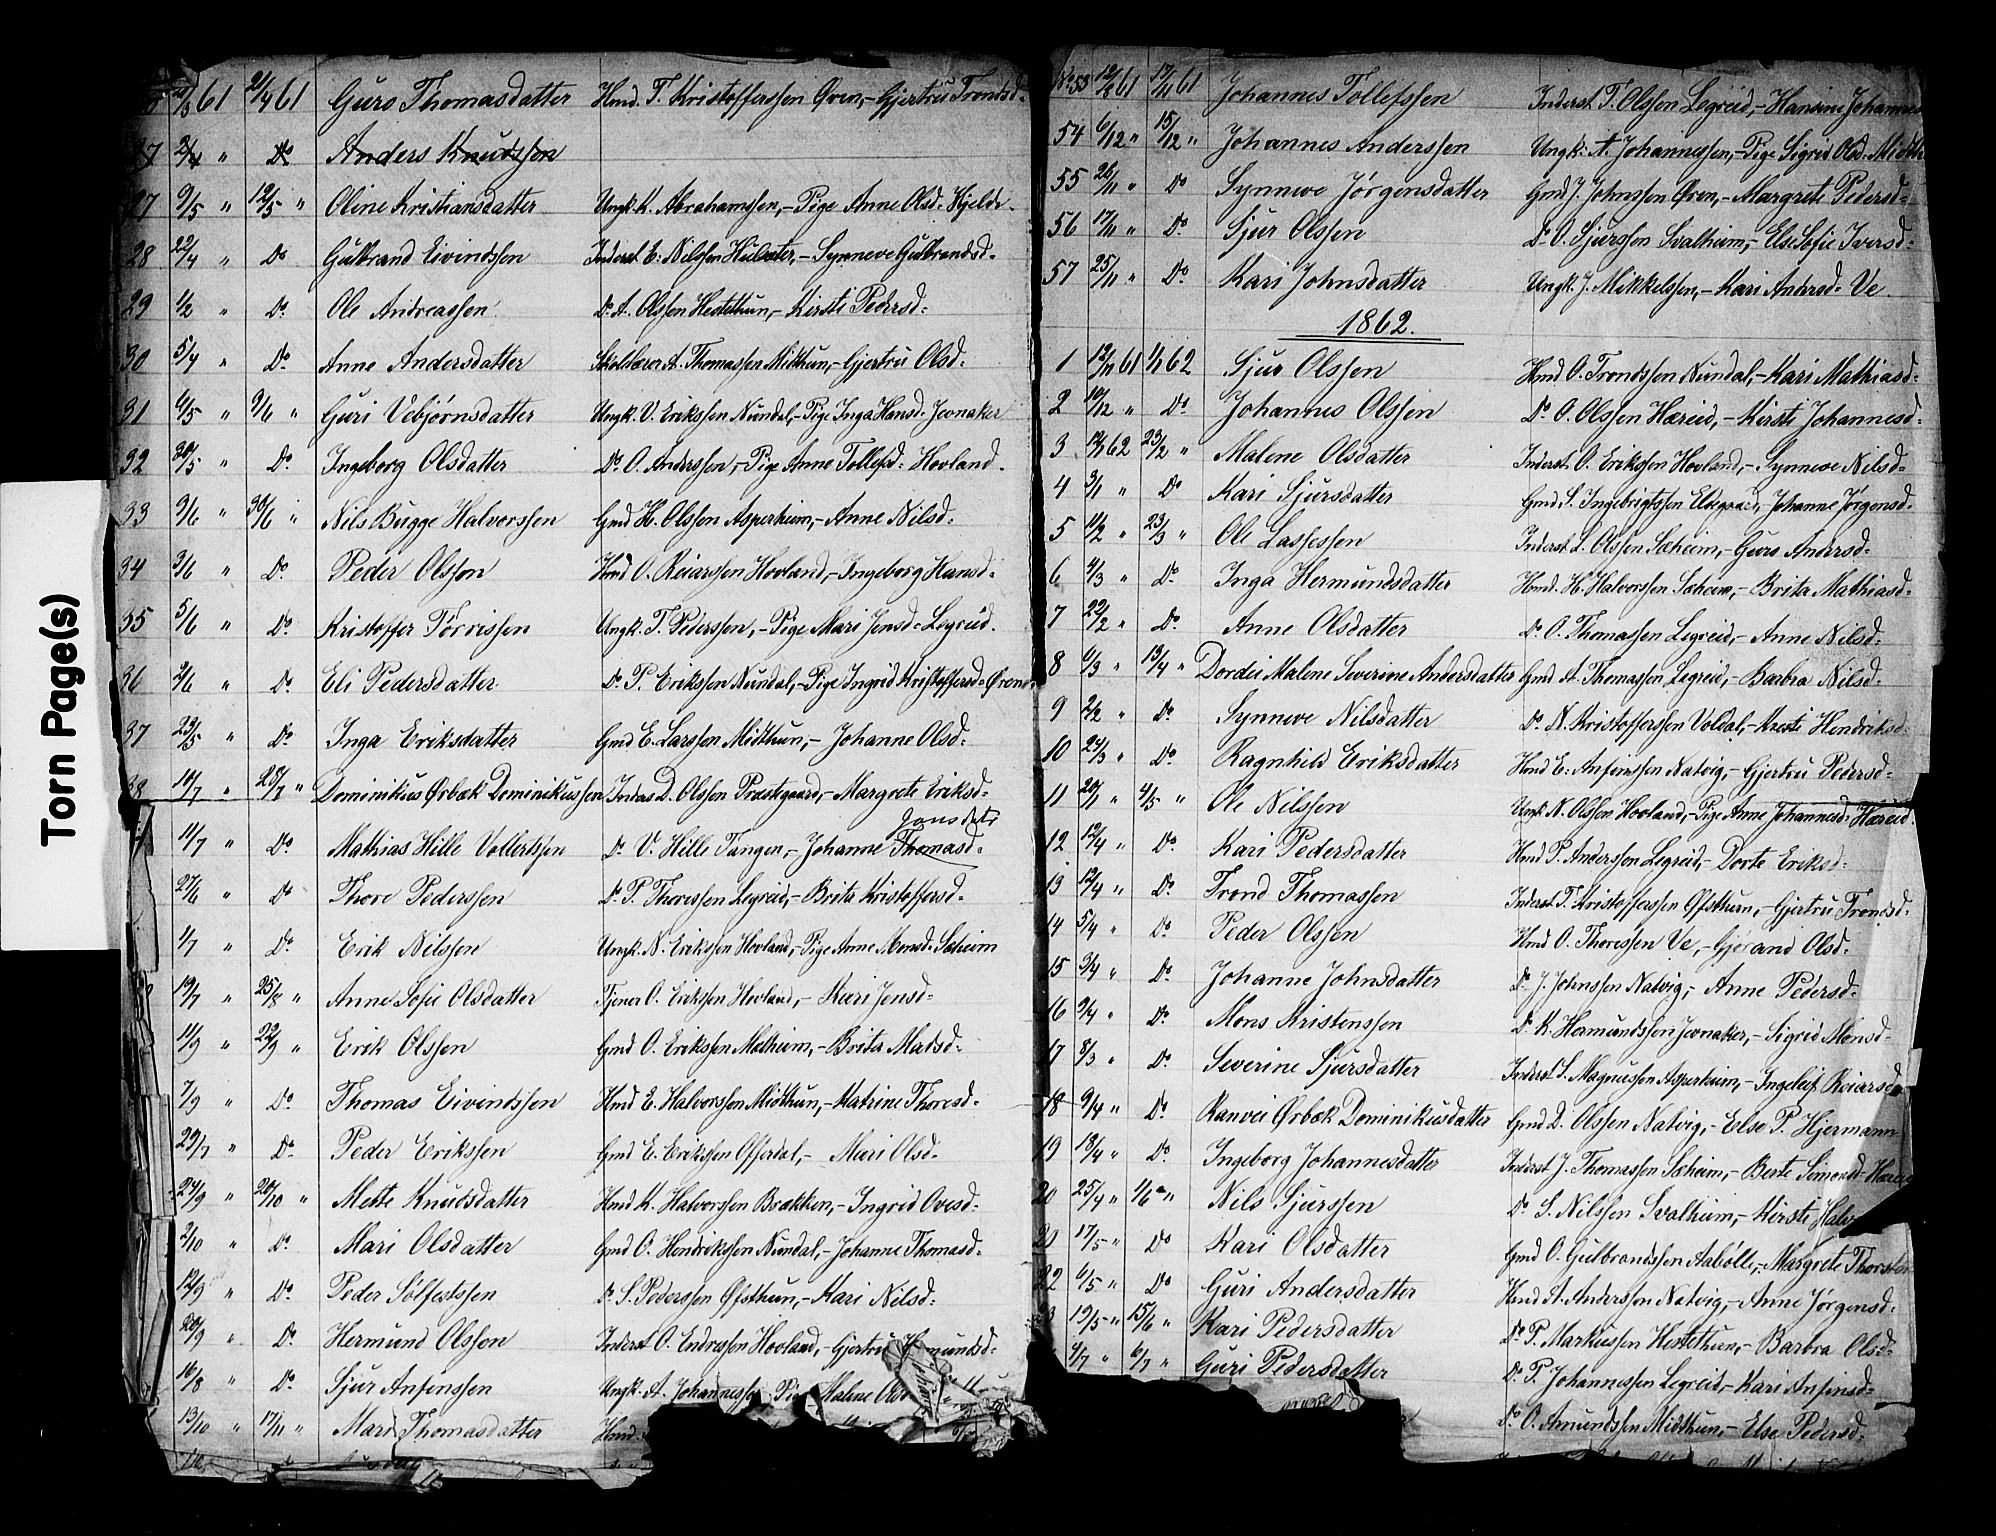 Torn Page(s)
61 21/4 61 Guro Thomasdatter Hmd. T. Kristofferssen Øren,- Gjertru Trondsd-
2/4 " Do Anders Knudssen
27 9/5 " 12/5 " Oline Kristiansdatter Ungk. K. Abrahamssen,- Pige Anne Olsd- Hjelde.
28 22/4 " Do Gulbrand Eivindssen Inderst E. Nilssen Hulsæter,- Synneve Gulbrandsd-
29 1/2 " Do. Ole Andreassen Do. A. Olssen Hestethun,- Kirsti Pedersd-
30 5/4 " Do. Anne Andersdatter Skolelærer A. Thomassen Midthun,- Gjertru Olsd-
31 6/5 " 9/6 " Guri Vebjørnsdatter Ungk. V. Erikssen Nundal,- Pige Inga Hansd- Jevnaker
32 30/5 " Do. Ingeborg Olsdatter Do. O. Anderssen,- Pige Anne Tollefsd- Hovland.
33 9/6 " 30/6 " Nils Bugge Halvorssen Gmd H. Olssen Asperheim,- Anne Nilsd-
34 3/6 " Do. Peder Olssen Hmd O. Reiarssen Hovland,- Ingeborg Hansd-
35 5/6 " Do. Kristoffer Tørrissen Ungk. T. Pederssen,- Pige Mari Jensd- Legreid.
36 2/6 " Do. Eli Pedersdatter Do. P. Erikssen Nundal,- Pige Ingrid Kristoffersd- Øren
37 23/5 " Do. Inga Eriksdatter Gmd E. Larssen Midthun,- Johanne Olsd-
38 10/7 " 28/7 " Dominikus Ørbæk Dominikussen Inders D. Olssen Præstegaard,- Margrete Eriksd-
Jonsdatr
11/7 " Do. Mathias Hille Vollertssen Do. V. Hille Tangen,- Johanne Thomasd-
27/6 " Do Thore Pederssen Do. P. Thoressen Legreid,- Brita Kristoffersd-
1/7 " Do. Erik Nilssen Ungk. N. Erikssen Hovland,- Pige Anne Monsd- Sæheim
19/7 " 25/8 " Anne Sofie Olsdatter Tjener O. Erikssen Hovland,- Kari Jensd-
11/9 " 22/9 " Erik Olssen Gmd O. Erikssen Melheim,- Brita Madsd-
7/9 " Do. Thomas Eivindssen Hmd E. Halvorssen Midthun,- Katrine Thoresd-
29/7 " Do. Peder Erikssen Gmd E. Erikssen Offerdal,- Mari Olsd-
24/9 " 20/10 " Mette Knudsdatter Hmd K. Halvorssen Brækken,- Ingrid Ovesd-
2/10 " Do. Mari Olsdatter Gmd O. Hendrikssen Nundal,- Johanne Thomasd-
12/9 " Do. Peder Sølfestssen Do. S. Pederssen Øfsthun,- Kari Nilsd-
20/9 " Do. Hermund Olssen Inderst O. Endressen Hovland,- Gjertru
16/8 " Do. Sjur Anfinssen Ungk. A. Johannessen Pige Malene
13/10 " 17/11 " Mari Thomasdatter Hmd.
No 53 12/ 61 17/11 61 Johannes Tollefssen Inderst T. Olssen Legreid,- Hansine Johannes
54 6/12 " 15/12 " Johannes Anderssen Ungk. A. Johannessen,- Pige Sigrid Olsd-
55 26/11 " Do. Synneve Jørgensdatter Gmd J. Johnssen Øren,- Margrete Pedersd-
56 17/11 " Do. Sjur Olssen Do O. Sjurssen Svalheim,- Else Sofie Iversd-
57 25/11 " Do. Kari Johnsdatter Ungk. J. Mikkelssen,- Kari Andersd- Ve.
1862.
1 12/11 61 1/1 62 Sjur Olssen Hmd O. Trondssen Nundal,- Kari Mathiasd-
2 10/12 " Do. Johannes Olssen Do. O. Olssen Hæreid,- Kirsti Johannesd-
3 12/1 62 23/2 " Malene Olsdatter Inderst O. Erikssen Hovland,- Synneve Nilsd-
4 3/1 " Do Kari Sjursdatter Gmd S. Ingebrigtssen Eldegaard,- Johanne Jørgensd-
5 11/2 " 23/3 " Ole Lassessen Inderst L. Olssen Sæheim,- Guro Andersd-
6 4/3 " Do. Inga Hermundsdatter Hmd. H. Halvorssen Sæheim,- Brita Mathiasd-
7 22/2 " Do. Anne Olsdatter Do. O. Thomassen Legreid,- Anne Nilsd-
8 6/3 " 13/4 " Dordei Malene Severine Andersdatter Gmd A. Thomassen Legreid,- Barbra Nilsd-
9 2/2 " Do. Synneve Nilsdatter Do. N. Kristofferssen Voldal,- Kresti Hendriksd-
10 24/3 " Do. Ragnhild Eriksdatter Hmd E. Anfinssen Natvig,- Gjertru Pedersd-
11 20/1 " 4/5 " Ole Nilssen Ungk N. Olssen Hovland,- Pige Anne Johannesd- Hæreid.
12 12/4 " Do. Kari Pedersdatter Hmd P. Anderssen Legreid,- Dorte Eriksd-
13 12/4 " Do. Trond Thomassen Inderst T. Kristofferssen Øfsthun,- Gjertru Trondsd-
14 5/4 " Do. Peder Olssen Hmd O. Thoressen Ve,- Gjørand Olsd-
15 3/4 " Do. Johanne Johnsdatter Do. J. Johnssen Natvig,- Anne Pedersd-
16 9/4 " Do. Mons Kristenssen Do. K. Hermundssen Jevnaker,- Sigrid Monsd-
17 8/3 " Do. Severine Sjursdatter Inderst S. Magnussen Asperheim,- Ingeleif Reiarsd-
18 9/4 " Do. Ranvei Ørbæk Dominikusdatter Gmd D. Olssen Natvig,- Else P. Hjermann
19 13/4 " Do. Ingeborg Johannesdatter Inderst J. Thomassen Sæheim,- Berte Simonsd-
20 25/4 " 1/6 " Nils Sjurssen Do. S. Nilssen Svalheim,- Kirsti
20 17/5 " Do Kari Olsdatter Gmd O. Gulbrandssen Aabølle,- Margrete
22 6/5 " Do Guri Andersdatter Hmd A. Anderssen Natvig,- Anne Jørgensd-
19/5 " 15/6 " Kari Pedersdatter Do. P. Markussen Hestethun,- Barbra Olsd-
4/7 " 6/7 " Guri Pedersdatter Do. P. Johannessen Legreid,- Kari Anfinsd-
Do. O. Amundssen Midthun,- Else Pedersd-